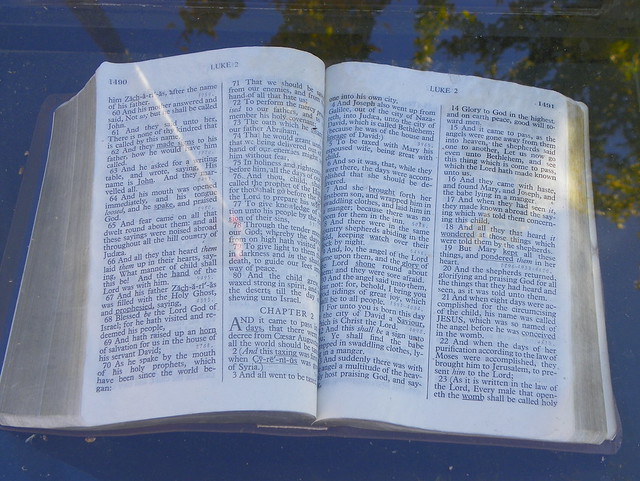 1490
LUKE 2
him Zăch-ă-rī'-ăs, after the name
of his father.
60 And his mother answered and
said, Not so; but he shall be called
John.
61 And they said unto her,
There is none of thy kindred that
is called by this name.
62 And they made signs to his
father, how he would have him
called.
63 And he asked for a writing
table, and wrote, saying, His
name is John. And they mar-
velled all.
64 And his mouth was opened
immediately, and his tongue
loosed, and he spake, and praised
God.
65 And fear came on all that
dwelt round about them: and all
these sayings were noised abroad
throughout all the hill country of
Judæa.
66 And all they that heard them
laid them up in their hearts, say-
ing, What manner of child shall
this be! And the hand of the
Lord was with him.
67 And his father Zăch-ă-rī'-ăs
was filled with the Holy Ghost,
and prophesied, saying,
68 Blessed be the Lord God of
Israel; for he hath visited and re-
deemed his people,
69 And hath raised up an horn
of salvation for us in the house of
his servant David;
70 As he spake by the mouth
of his holy prophets, which
have been since the world be-
gan:
71 That we should be
from our enemies, and from
hand of all that hate us;
72 To perform the
to our fathers, and
member his holy
73 The oath which he
our father Abraham,
74 That he would grant
that we being delivered
hand of our enemies might
him without fear,
75 In holiness and righteous
before him, all the days of
76 And thou, child,
called the prophet of the High
for thou shalt go before the
the Lord to prepare his
77 To give knowledge of
tion unto his people by the
sion of their sins,
78 Through the tender
our God; whereby the day
on high hath visited
79 To give light to them
in darkness and in the
death, to guide our feet
way of peace.
80 And the child grew,
waxed strong in spirit,
the deserts till the day
shewing unto Israel.
CHAPTER 2
AND it came to pass
days, that there
decree from Cæsar Augus
all the world should be
2 (And this taxing was
when Cȳ-rē'-nĭ-ŭs was
of Syria.)
3 And all went to be
LUKE 2
1491
one into his own city.
4 And Joseph also went up from
Galilee, out of the city of Naza-
reth, into Judæa, unto the city of
David, which is called Bethlehem;
because he was of the house and
lineage of David:)
5 To be taxed with Mary his
espoused wife, being great with
child.
6 And so it was, that, while they
were there, the days were accom-
plished that she should be de-
livered.
7 And she brought forth her
firstborn son, and wrapped him in
swaddling clothes, and laid him in
a manger; because there was no
room for them in the inn.
8 And there were in the same
country shepherds abiding in the
field, keeping watch over their
flock by night.
9 And, lo, the angel of the Lord
came upon them, and the glory of
the Lord shone round about
them: and they were sore afraid.
10 And the angel said unto them,
Fear not: for, behold, I bring you
good tidings of great joy, which
shall be to all people.
11 For unto you is born this day
in the city of David a Saviour,
which is Christ the Lord.
12 And this shall be a sign unto
you; Ye shall find the babe
wrapped in swaddling clothes, ly-
ing in a manger.
13 And suddenly there was with
the angel a multitude of the heav-
enly host praising God, and say-
14 Glory to God in the highest,
and on earth peace, good will to-
ward men.
15 And it came to pass, as the
angels were gone away from them
into heaven, the shepherds said
one to another, Let us now go
even unto Bethlehem, and see
this thing which is come to pass,
which the Lord hath made known
unto us.
16 And they came with haste,
and found Mary, and Joseph, and
the babe lying in a manger.
17 And when they had seen it,
they made known abroad the say-
ing which was told them concern-
ing this child.
18 And all they that heard it
wondered at those things which
were told them by the shepherds.
19 But Mary kept all these
things, and pondered them in her
heart.
20 And the shepherds returned,
glorifying and praising God for all
the things that they had heard and
seen, as it was told unto them.
21 And when eight days were ac-
complished for the circumcising
of the child, his name was called
JESUS, which was so named of
the angel before he was conceived
in the womb.
22 And when the days of her
purification according to the law of
Moses were accomplished, they
brought him to Jerusalem, to pre-
sent him to the Lord;
23 (As it is written in the law of
the Lord, Every male that open-
eth the womb shall be called holy